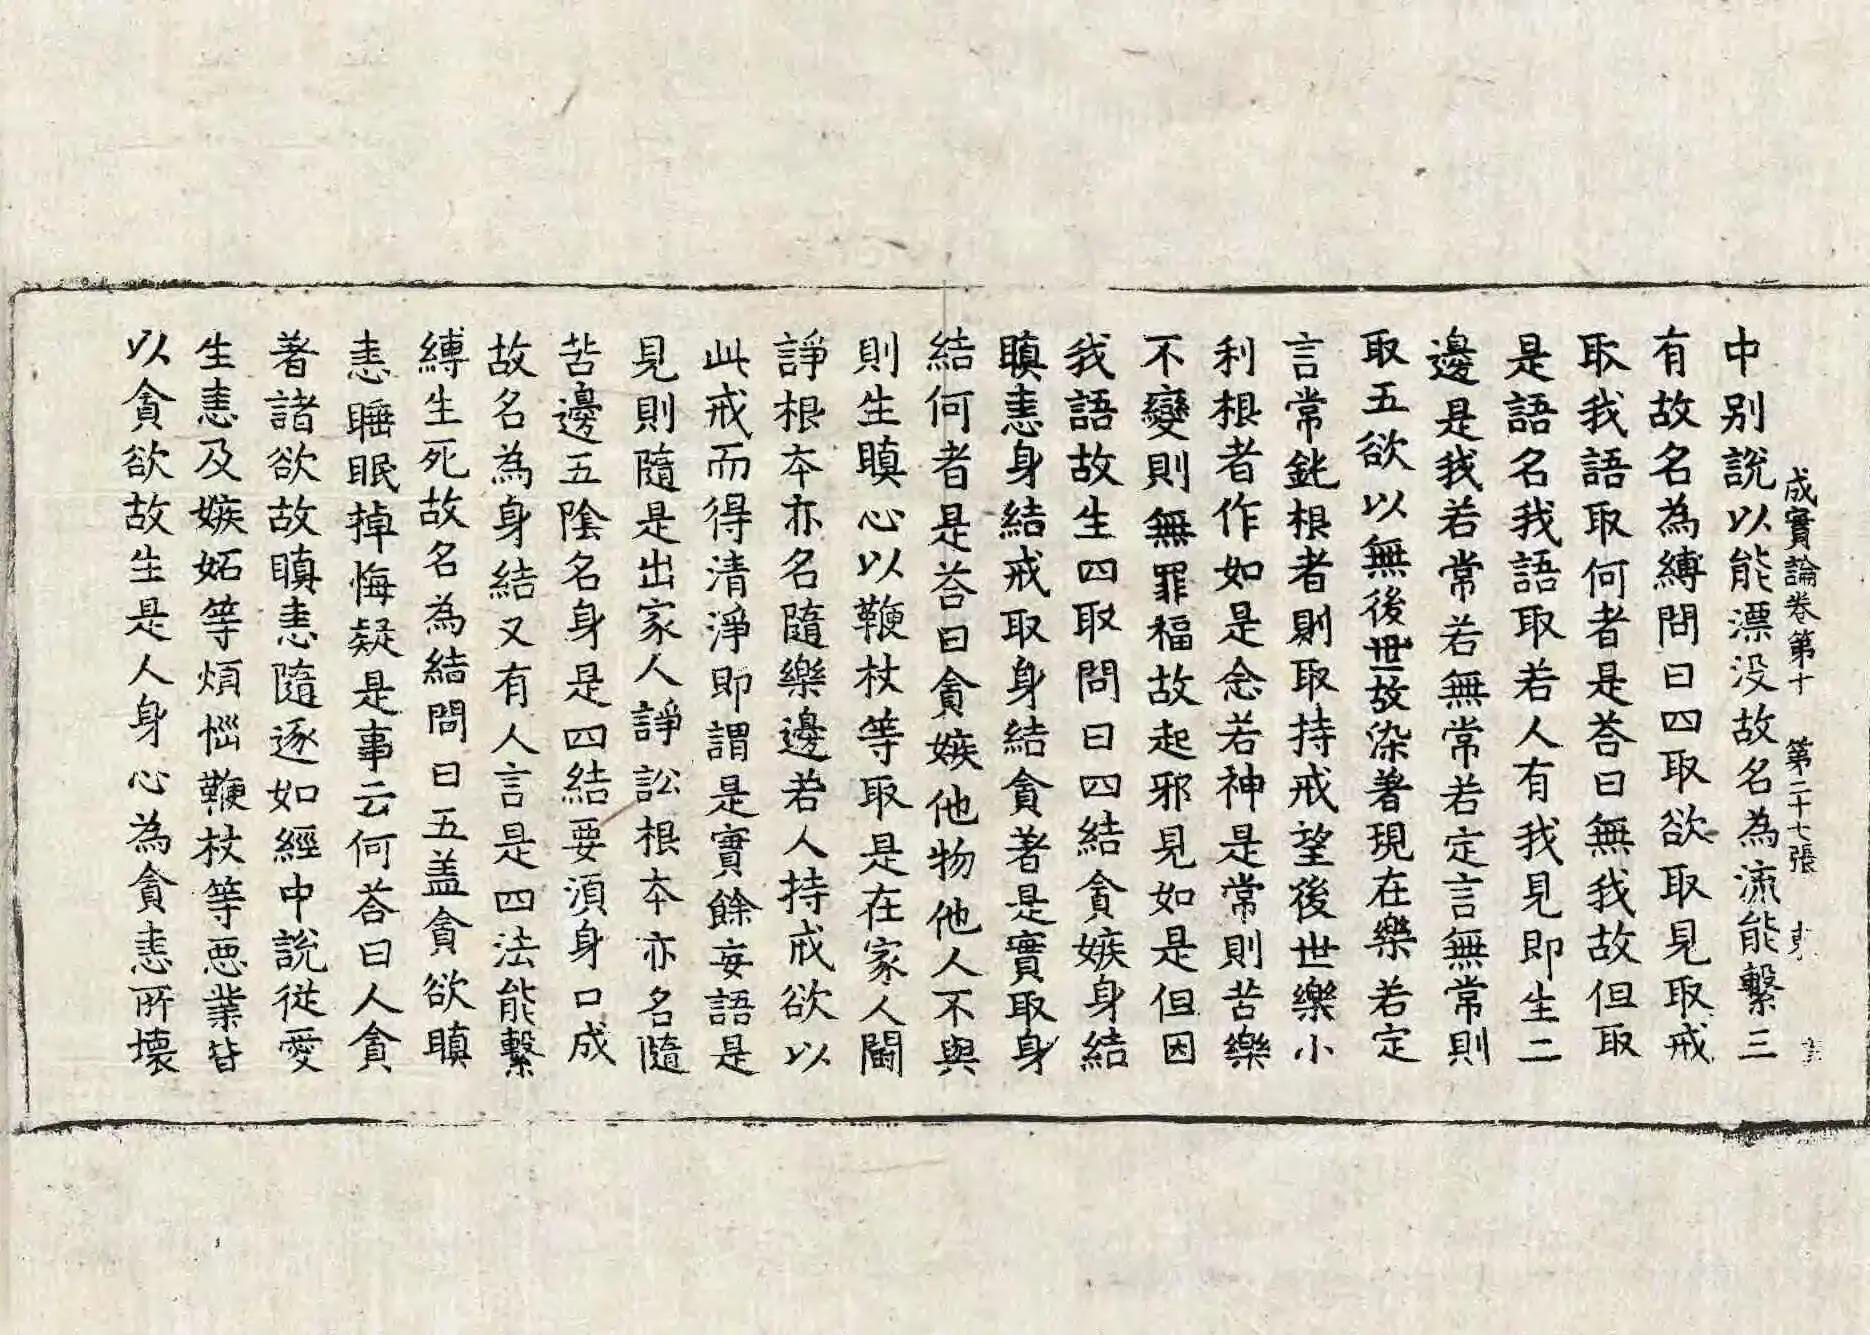 成實論卷第十 第二十七張
中別說以能漂没故名為流能繫三
有故名為縛問曰四取欲取見取戒
取我語取何者是荅曰無我故但取
是語名我語取若人有我見即生二
邊是我若常若無常若定言無常則
取五欲以無後世故染著現在樂若定
言常鈍根者則取持戒望後世樂小
利根者作如是念若神是常則苦樂
不變則無罪福故起邪見如是但因
我語故生四取問曰四結貪嫉身結
瞋恚身結戒取身結貪著是實取身
結何者是荅曰貪嫉他物他人不與
則生瞋心以鞭杖等取是在家人鬪
諍根本亦名隨樂邊若人持戒欲以
此戒而得清淨即謂是實餘妄語是
見則隨是出家人諍訟根本亦名隨
苦邊五陰名身是四結要須身口成
故名為身結又有人言是四法能繫
縛生死故名為結問曰五盖貪欲瞋
恚睡眠掉悔疑是事云何荅曰人貪
著諸欲故瞋恚隨逐如經中說從愛
生恚及嫉妬等煩惱鞭杖等惡業皆
以貪欲故生是人身心為貪恚所壞